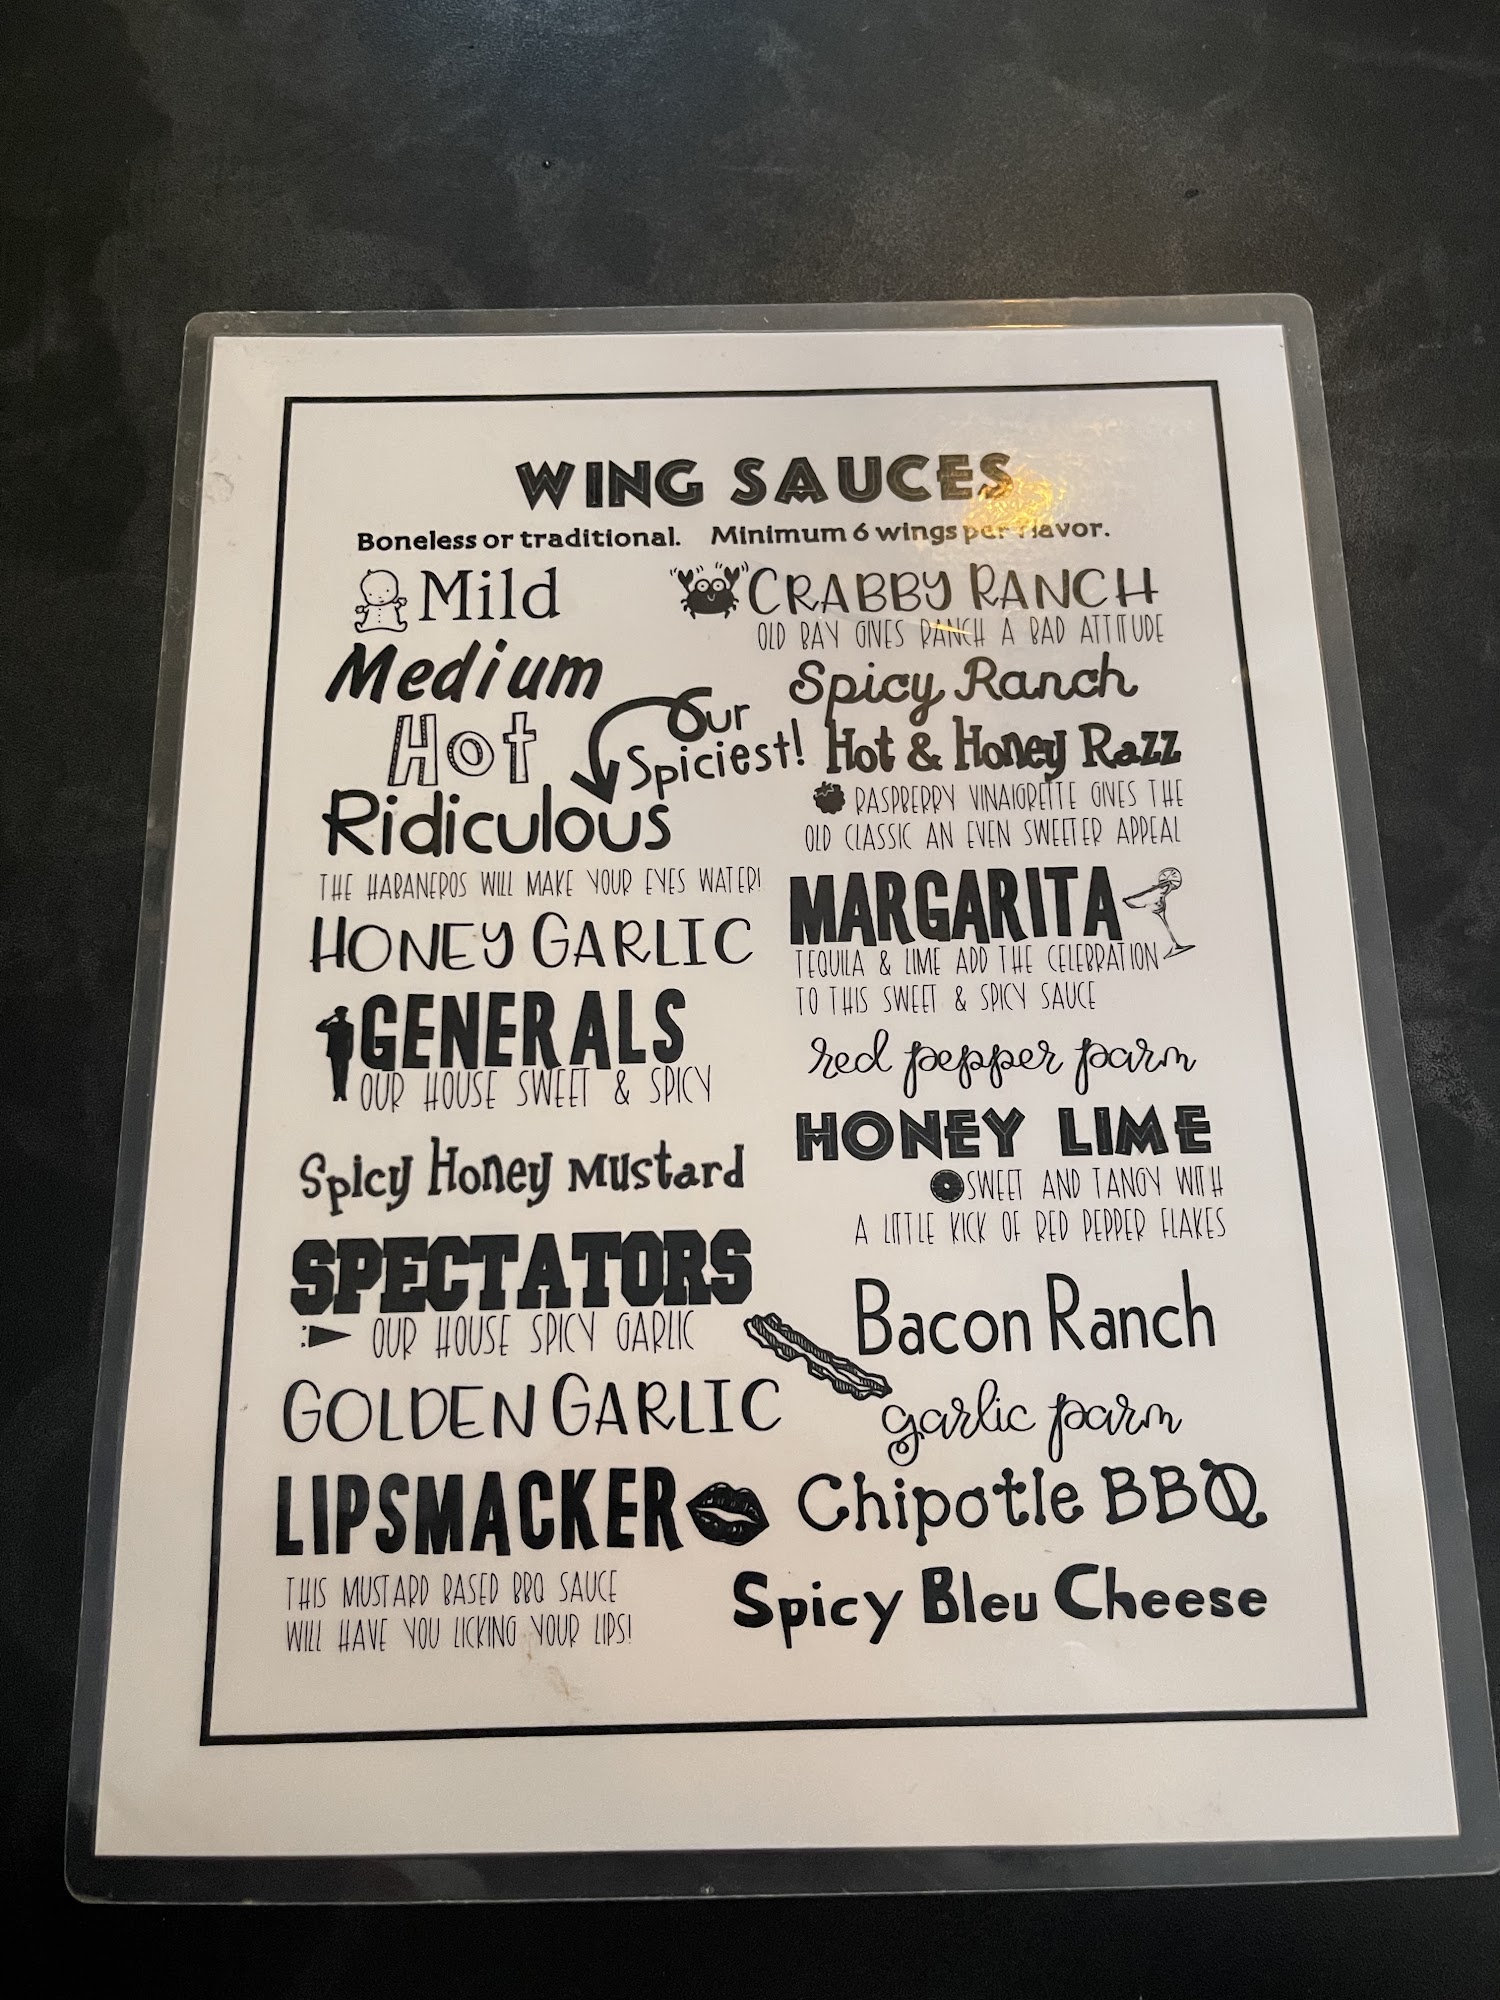 WING SAUCES
Boneless or traditional. Minimum 6 wings per flavor.
Mild
Medium
Hot
Our
Spiciest!
Ridiculous
THE HABANEROS WILL MAKE YOUR EYES WATER!
HONEY GARLIC
GENERALS
OUR HOUSE SWEET & SPICY
Spicy Honey Mustard
SPECTATORS
OUR HOUSE SPICY GARLIC
GOLDEN GARLIC
LIPSMACKER
THIS MUSTARD BASED BBQ SAUCE
WILL HAVE YOU LICKING YOUR LIPS!
CRABBY RANCH
OLD BAY GIVES RANCH A BAD ATTITUDE
Spicy Ranch
Hot & Honey Razz
RASPBERRY VINAIGRETTE GIVES THE
OLD CLASSIC AN EVEN SWEETER APPEAL
MARGARITA
TEQUILA & LIME ADD THE CELEBRATION
TO THIS SWEET & SPICY SAUCE
red pepper parm
HONEY LIME
SWEET AND TANGY WITH
A LITTLE KICK OF RED PEPPER FLAKES
Bacon Ranch
garlic parm
Chipotle BBQ
Spicy Bleu Cheese